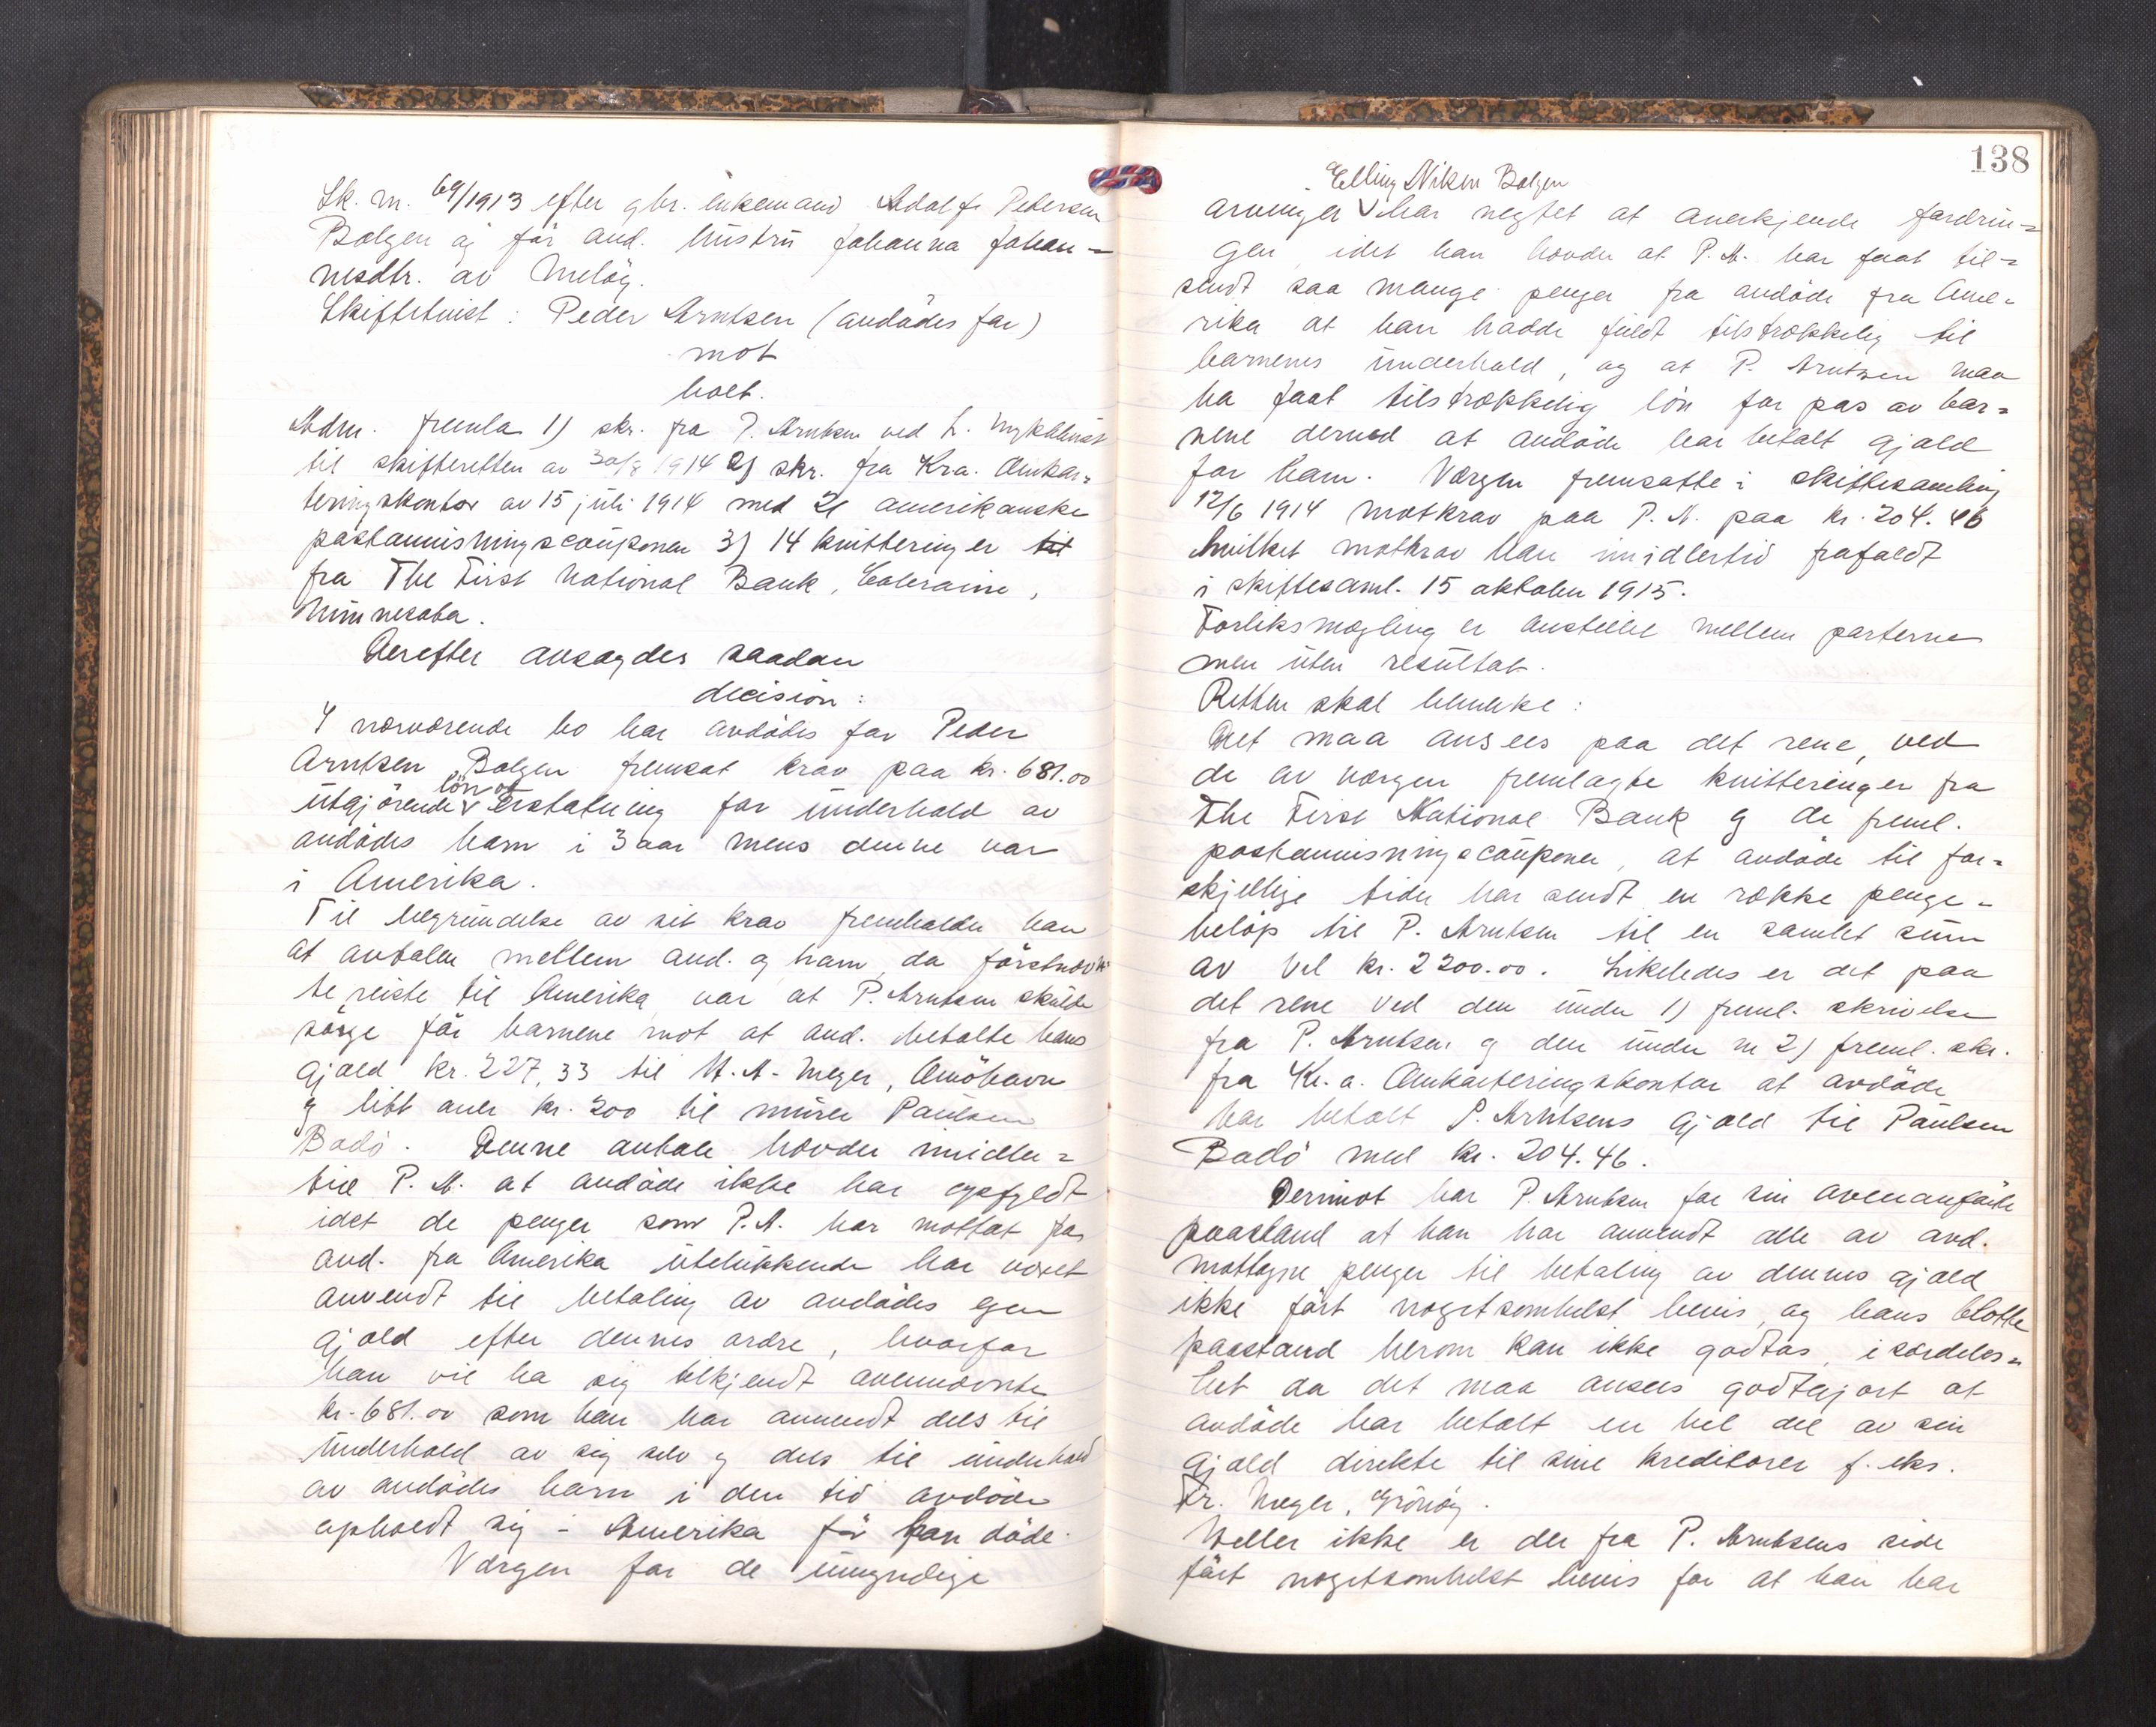 Sk. nr. 69/1913 efter gbr. enkemand Adolf Pedersen
Bolgen og før avd. hustru Johanna Johan-
nesdtr. av Meløy.
Skiftetvist: Peder Arntsen (avdødes far)
mot
boet.
Adm. fremla 1) skr. fra P. Arntsen ved L.
til skifteretten av 30/8 1914 2) skr. fra Kra. Omkar-
teringskontor av 15 juli 1914 med 21 amerikanske
postanvisningscouponer 3) 14 kvitteringer til
fra The First National Bank, Coleraine,
Minnesota.
Derefter avsagdes saadan
decision:
I nærværende bo har avdødes far Peder
Arntsen Bolgen fremsat krav paa kr. 681.00
utgjørende løn og erstatning for underhold av
avdødes barn i 3 aar mens denne var
i Amerika.
Til begrundelse av sit krav fremholder han
at avtalen mellem avd. og ham, da førstnævn-
te reiste til Amerika var at P. Arntsen skulde
sørge for barnene mot at avd. betalte hans
gjæld kr. 227,33 til A. Meyer, Ømøhavn
og litt over kr. 200 til murer Paulsen
Bodø. Denne avtale hævder imidler-
tid P. A. at avdøde ikke har opfyldt
idet de penger som P. A. har mottat fra
avd. fra Amerika utelukkende har været
anvendt til betaling av avdødes egen
gjæld efter dennes ordre, hvorfor
han vil ha sig tilkjendt ovennævnte
kr. 681.00 som han har anvendt dels til
underhold av sig selv og dels til underhold
av avdødes barn i den tid avdøde
opholdt sig i Amerika før han døde.
Værgen for de umyndige
138
Elling Nilsen Bolgen
arvinger har negtet at anerkjende fordrin-
gen, idet han hævder at P. A. har faat til-
sendt saa mange penger fra avdøde fra Ame-
rika at han hadde fuldt tilstrækkelig til
barnenes underhold, og at P. Arntsen maa
ha faat tilstrækkelig løn for pas av bar-
nene derved at avdøde har betalt gjæld
for ham. Værgen fremsatte i skiftesamling
12/6 1914 motkrav paa P. A. paa kr. 204.46
hvilket motkrav han imidlertid frafaldt
i skiftesaml. 15 oktober 1915.
Forliksmægling er anstillet mellem parterne
men uten resultat.
Retten skal bemerke:
Det maa ansees paa det rene, ved
de av værgen fremlagte kvitteringer fra
The First National Bank og de freml.
postanvisningscouponer, at avdøde til for-
skjellige tider har sendt en række penge-
beløp til P. Arntsen til en samlet sum
av vel kr. 2200.00. Likeledes er det paa
det rene ved den under 1) freml. skrivelse
fra P. Arntsen og den under nr 2) freml. skr.
fra Kr.a. Omkarteringskontor at avdøde
har betalt P. Arntsens gjæld til Paulsen
Bodø med kr. 204.46.
Derimot har P. Arntsen for sin ovenanførte
paastand at han har anvendt alle av avd.
mottagne penger til betaling av dennes gjæld
ikke ført nogetsomhelst bevis, og hans blotte
paastand herom kan ikke godtas, i særdeles-
het da det maa ansees godtgjort at
avdøde har betalt en hel del av sin
gjæld direkte til sine kreditorer f. eks.
Fr. Meyer, Grönøy.
Heller ikke er der fra P. Arntsens side
ført nogetsomhelst bevis for at han har